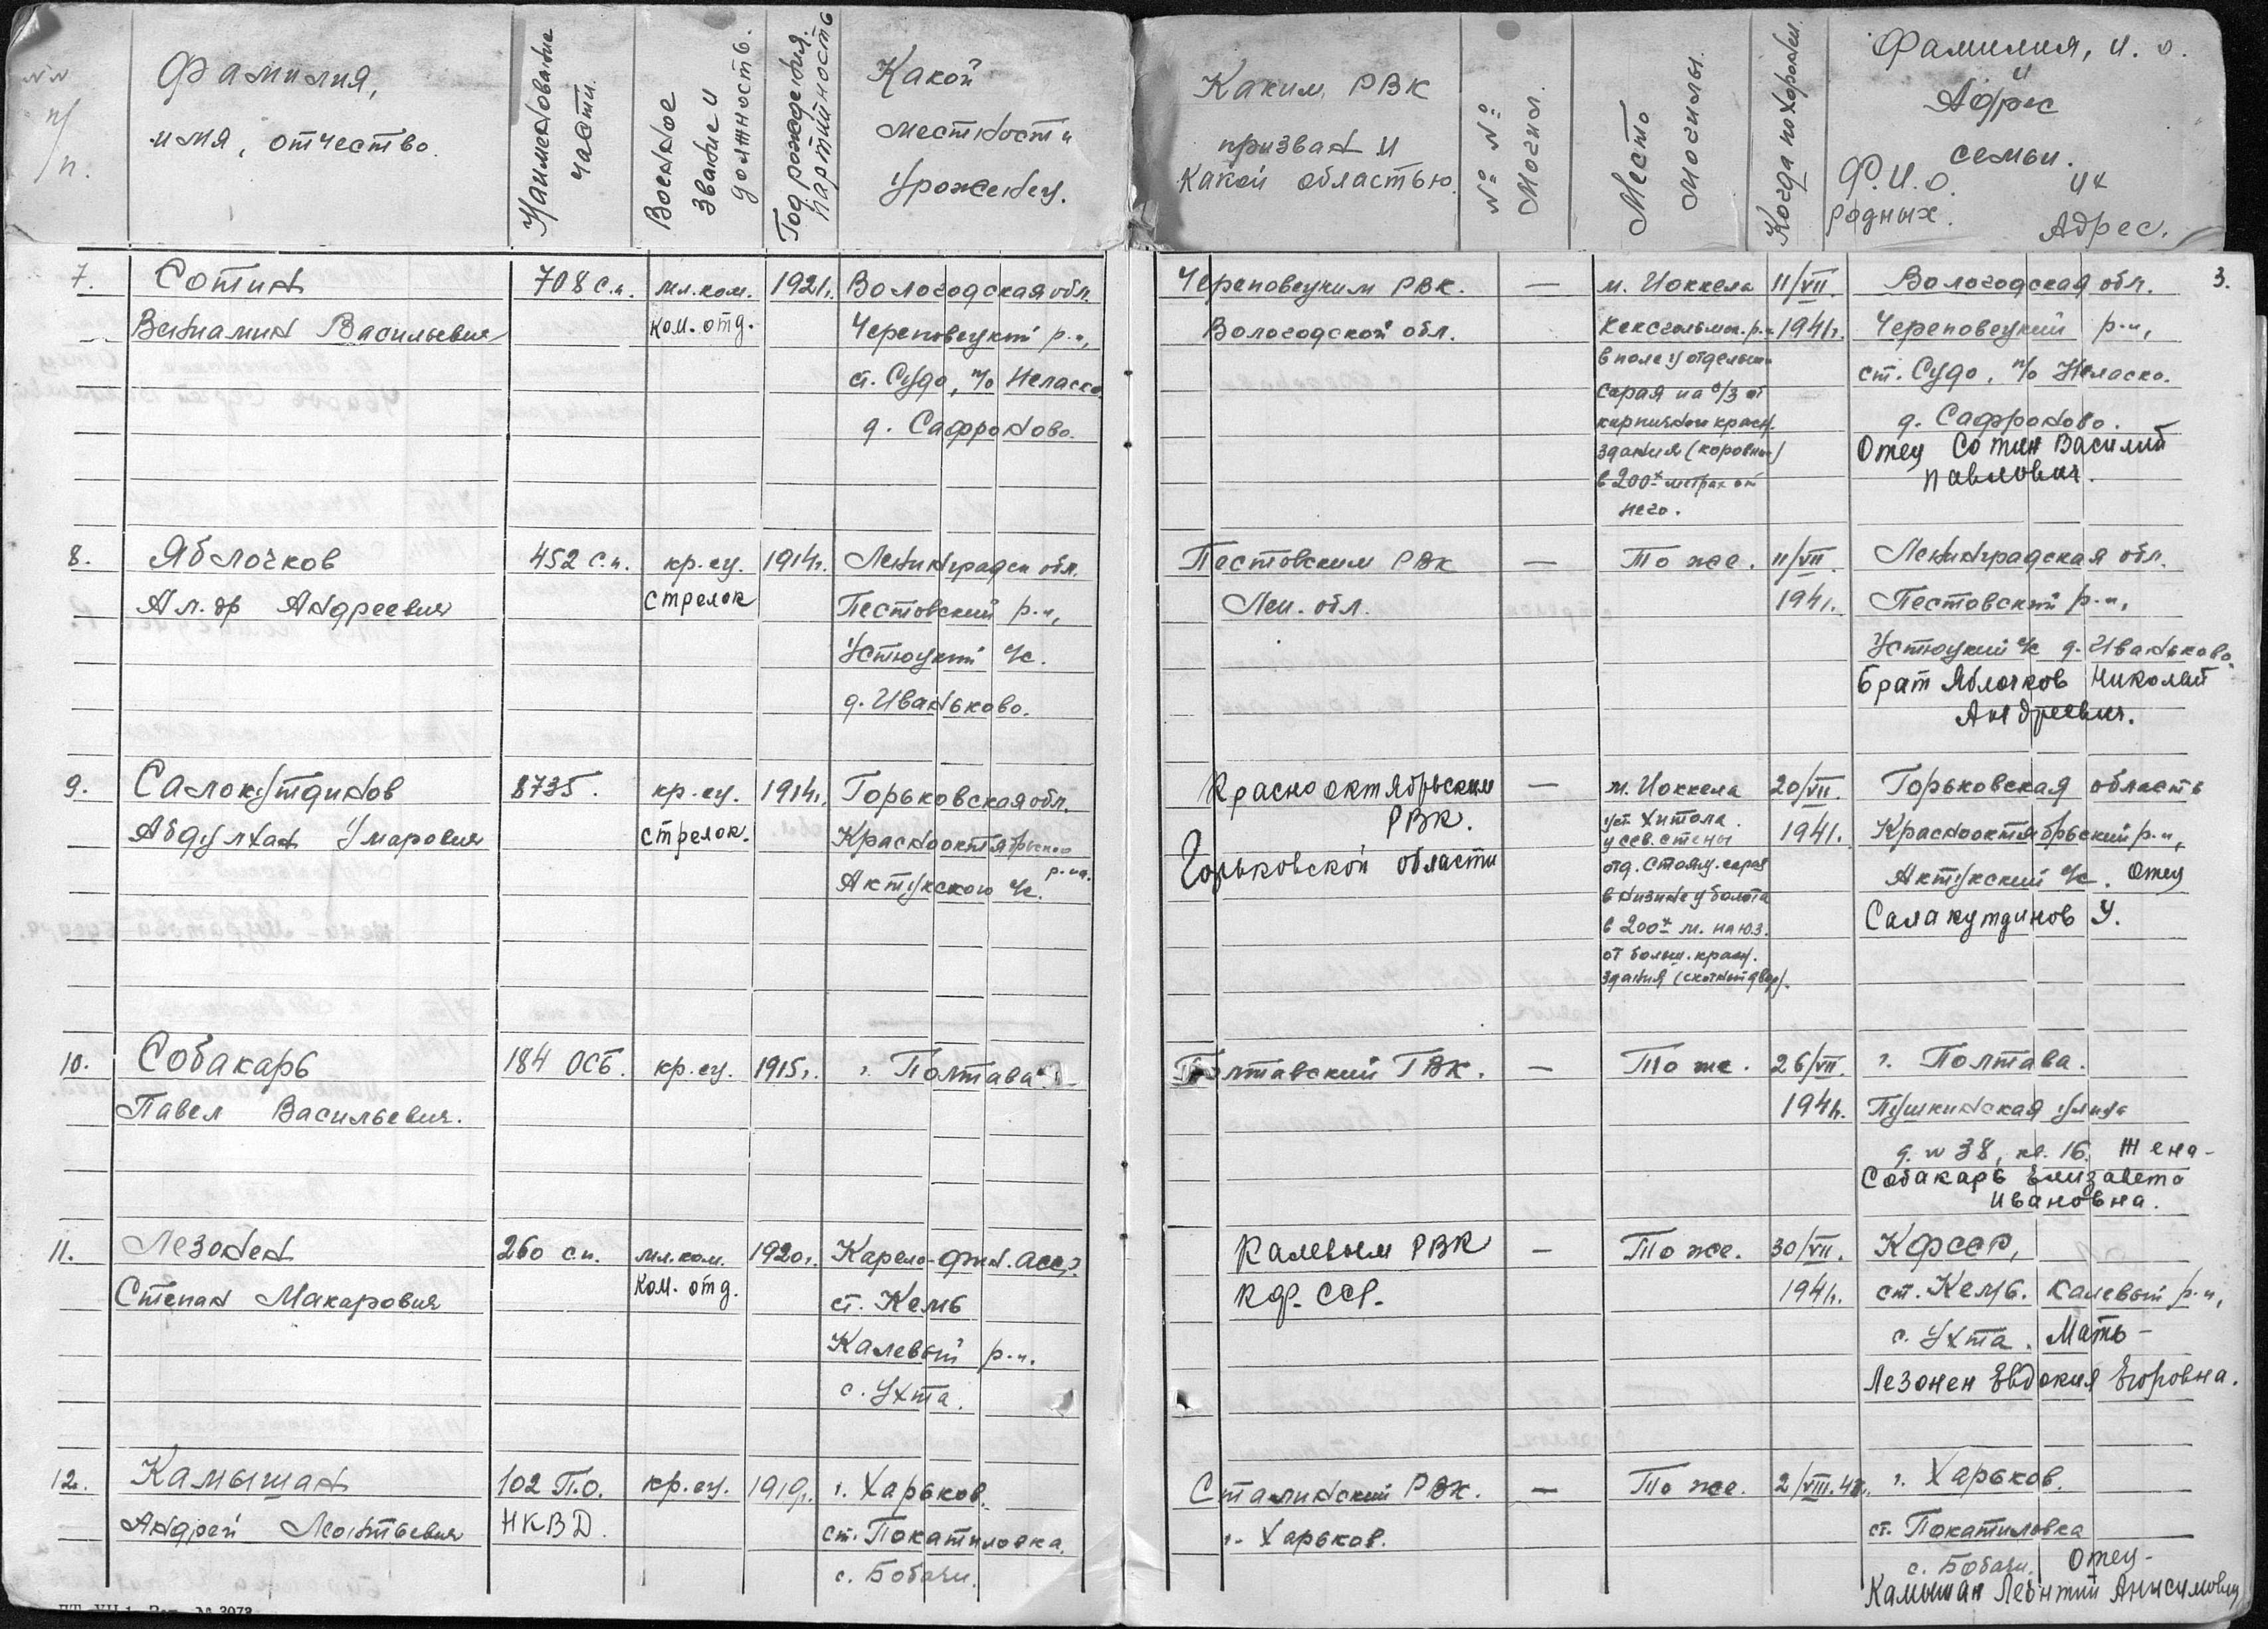 №№ п/п.
Фамилия, имя, отчество.
Наименование части.
Военное звание и должность.
Год рождения. партийность
Какой местности урожен​ец.
Каким РВК призван и какой областью.
№№ №№ Могил.
Место могилы.
Когда похоронен.
Фамилия, и. о. и Адрес семьи.
Ф.И.О. родных. их Адрес.
3.
7.
Сотин
Вениамин Васильевич
708 с.п.
мл.ком.
ком. отд.
1921г.
Вологодская обл.
Череповецкий р-н,
ст. Судо, п/о Неласко
д. Сафроново.
Череповецким РВК.
Вологодской обл.
—
м. Иоккела
Кексгольмск. р-н
в поле у отдельн.
сарая на с/з от
кирпичной красн.
здания (коровник)
в 200х метрах от
него.
11/VII.
1941г.
Вологодская обл.
Череповецкий р-н,
ст. Судо, п/о Неласко.
д. Сафроново.
Отец Сотин Василий
Павлович.
8.
Яблочков
Ал-др Андреевич
452 с.п.
кр-ец.
стрелок
1914г.
Ленинградск обл.
Пестовский р-н,
Устюцкий с/с.
д. Иваньково.
Пестовским РВК
Лен. обл.
—
То же.
11/VII
1941.
Ленинградская обл.
Пестовский р-н,
Устюцкий с/с д. Иваньково.
брат Яблочков Николай
Андреевич.
9.
Салокутдинов
Абдулхан Умарович
8735.
кр-ец.
стрелок.
1914г.
Горьковская обл.
Краснооктябрьского
р-на.
Актукского с/с.
Краснооктябрьским
РВК.
Горьковской области
—
м. Иоккела
ст. Хитола.
у сев. стены
отд. стоящ. сарая
в низине у болота
в 200х м. на ю.з.
от больш. красн.
здания (скотный двор).
20/VII.
1941.
Горьковская область
Краснооктябрьский р-н,
Актукский с/с. Отец
Салакутдинов У.
10.
Собакарь
Павел Васильевич.
184 ОСБ.
кр-ец.
1915г.
г. Полтава
Полтавский ГВК.
—
То же.
26/VII.
1941г.
г. Полтава.
Пушкинская улица
д. № 38, кв. 16. Жена-
Собакарь Елизавета
Ивановна.
11.
Лезонен
Степан Макарович
260 сп.
мл.ком.
Ком. отд.
1920г.
Карело-Фин. АССР.
ст. Кемь
Калевый р-н.
с. Ухта.
Калевым РВК
Кф. ССР.
—
То же.
30/VII.
1941г.
КФССР,
ст. Кемь. Калевый р-н,
с. Ухта. Мать-
Лезонен Евдокия Егоровна.
12.
Камышан
Андрей Леонтьевич
102 П.О.
НКВД.
кр-ец.
1919г.
г. Харьков.
ст. Покатиловка.
с. Бобачи.
Сталинский РВК.
г. Харьков.
—
То же.
2/VIII.41г.
г. Харьков.
ст. Покатиловка
с. Бобачи. Отец-
Камышан Леонтий Анисимович